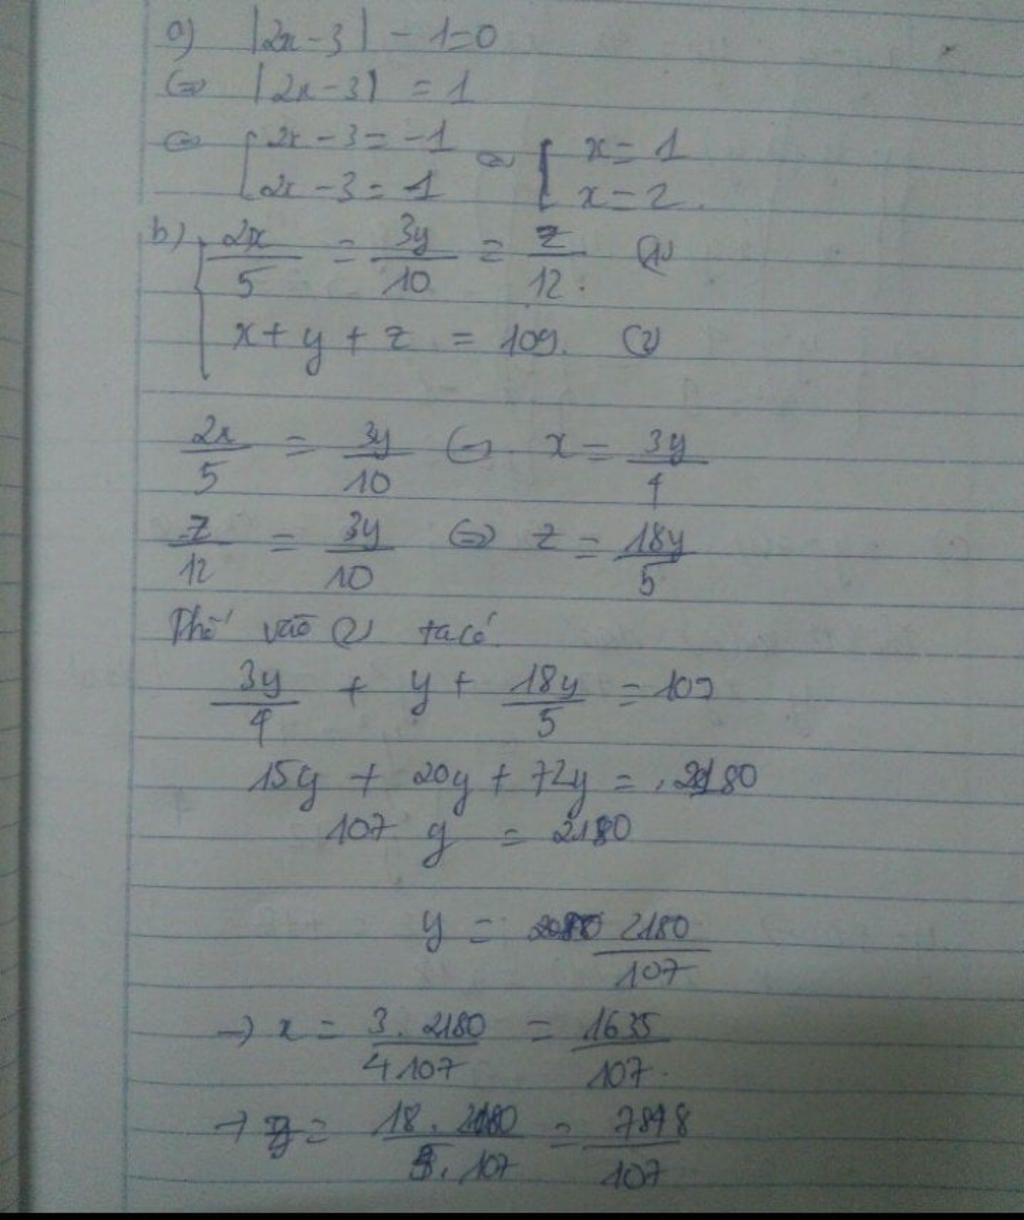 a) |2x - 3| - 1 = 0
⇔ |2x - 3| = 1
⇔ [ 2x - 3 = -1 ⇔ [ x = 1
2x - 3 = 1 x = 2.
b) { 2x/5 = 3y/10 = z/12. (1)
x + y + z = 109. (2)
2x/5 = 3y/10 ⇔ x = 3y/4
z/12 = 3y/10 ⇔ z = 18y/5
Thế vào (2) ta có
3y/4 + y + 18y/5 = 109
15y + 20y + 72y = 2180
107 y = 2180
y = 2180/107
→ x = 3 . 2180/4 107 = 1635/107.
→ z = 18 . 2180/5 . 107 = 7848/107